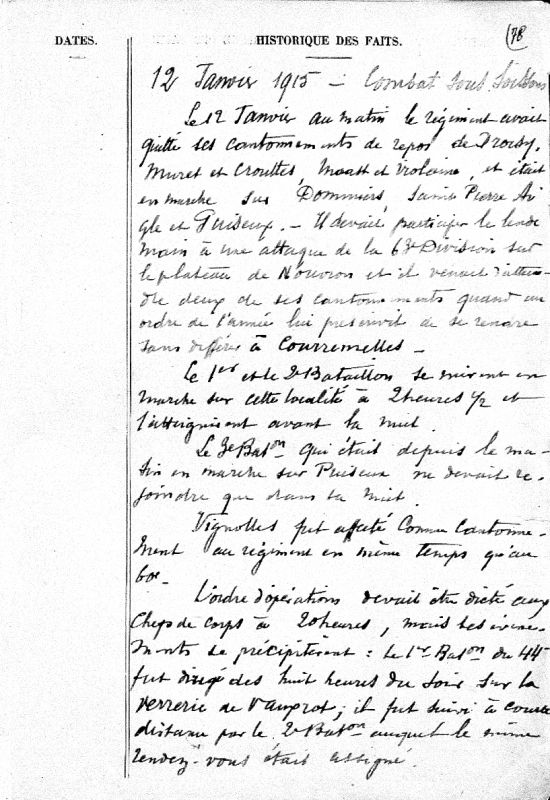 78
DATES.
HISTORIQUE DES FAITS.
12 Janvier 1915 - Combat sous Soissons
Le 12 Janvier au matin le régiment avait
quitté ses cantonnements de repos de Droisy,
Muret et Crouttes, Maast et Violaine, et était
en marche sur Dommiers, Saint Pierre Ai
gle et Puiseux. - Il devait participer le lende
main à une attaque de la 63e Division sur
le plateau de Nouvron et il venait d'attein-
dre deux de ses cantonnements quand un
ordre de l'armée lui prescrivit de se rendre
sans différer à Courmelles -
Le 1er et le 2e Bataillon se mirent en
marche sur cette localité à 2 heures 1/2 et
l'atteignirent avant la nuit.
Le 3e Baton qui était depuis le ma-
tin en marche sur Puiseux ne devait re-
joindre que dans la nuit.
Vignolles fut affecté comme cantonne-
ment au régiment en même temps qu'au
60e -
L'ordre d'opérations devait être dicté aux
Chefs de corps à 20 heures, mais les évène-
ments se précipitèrent : le 1er Baton du 44e
fut dirigé dès huit heures du soir sur la
verrerie de Vauxrot ; il fut suivi à courte
distance par le 2e Baton auquel le même
rendez-vous était assigné.